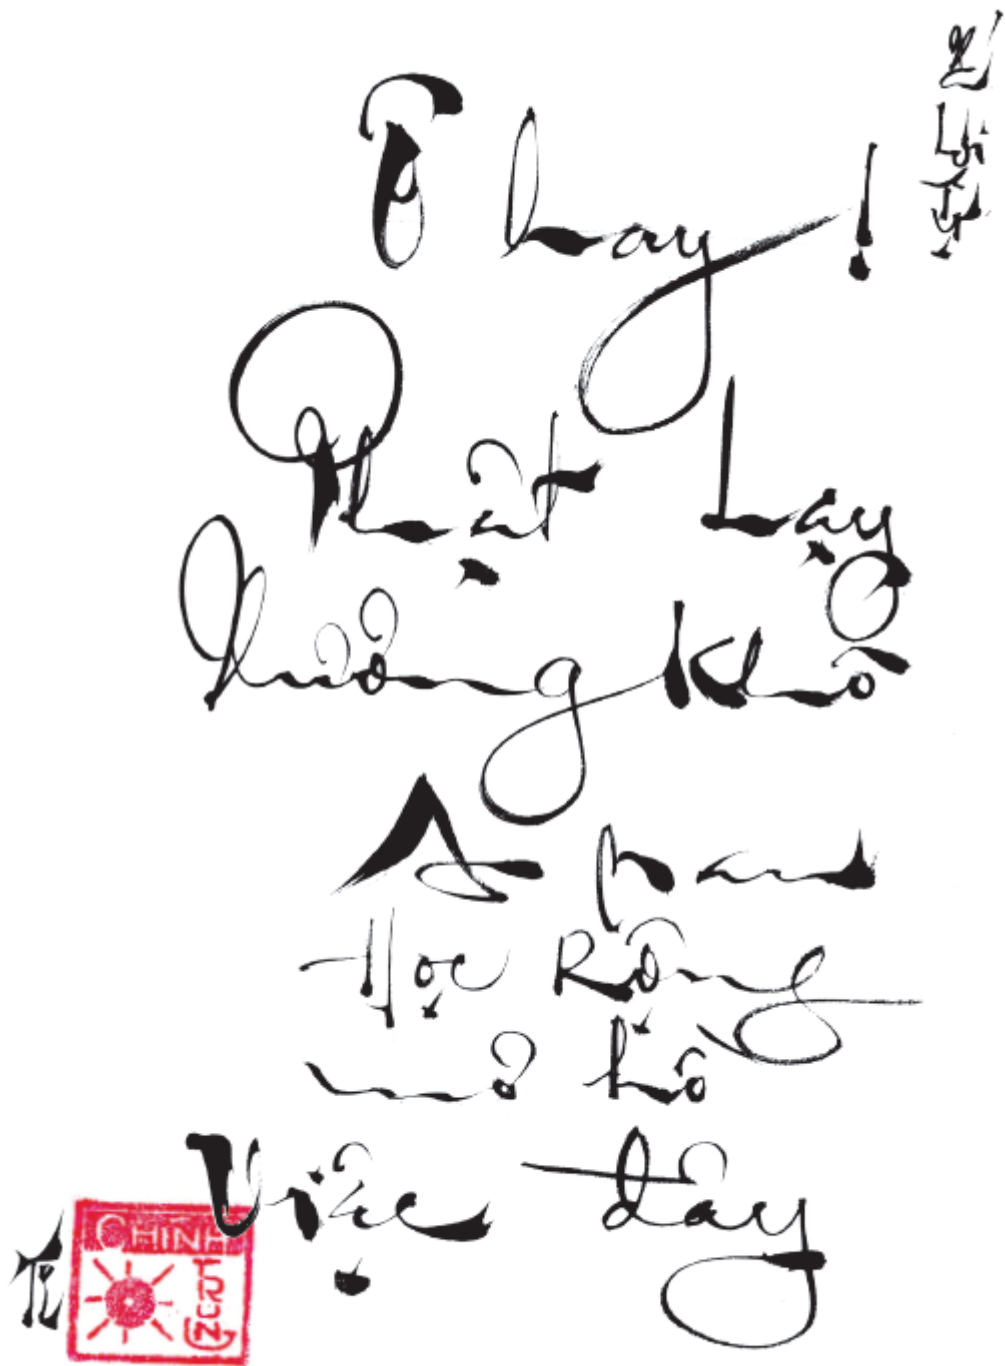 Ô hay !
Phật Lạy
Xương khô
A nan
Học Rộng
mơ hồ
Việc đây
CHÍNH
TRUNG